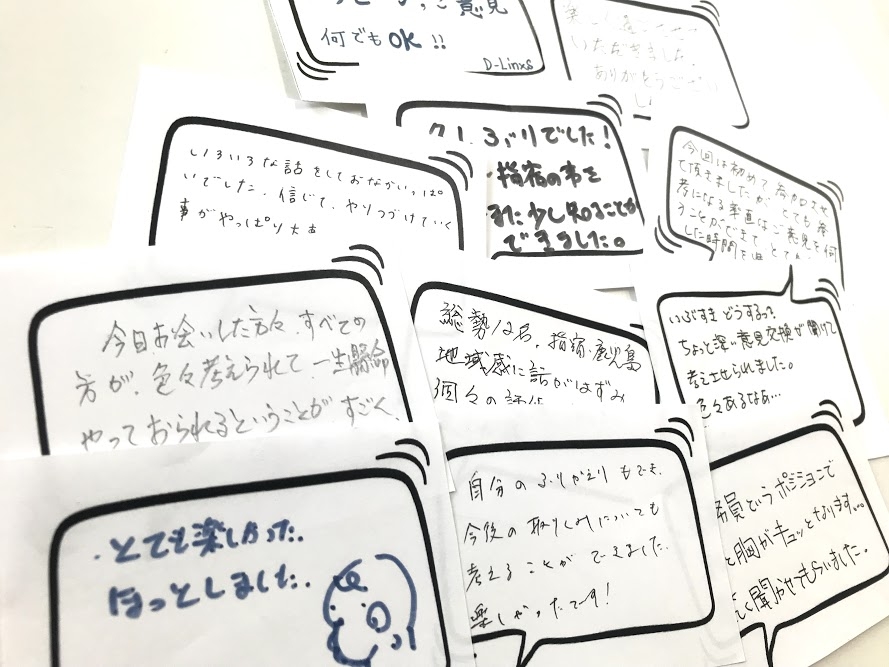 ご意見
何でもOK!!
D-Linxs
いただきました。
ありがとうござい
いろいろな話をしておなかいっぱ
いでした。信じて、やりつづけていく
事がやっぱり大事
ぶりでした!
指宿の事を
また少し知ることが
できました。
今回は初めて参加させ
て頂きましたが、とても参
考になる率直なご意見を伺
うことができて、とても
した時間を過
今日お会いした方々、すべての
方が、色々考えられて、一生懸命
やっておられるということが、すごく
総勢12名。指宿・鹿児島
地域感に話がはずみ
個々の
いぶすき どうするっ?
ちょっと深い意見交換が聞けて
考えさせられました。
色々あるなぁ…
とても楽しかった。
ほっとしました。
自分のふりかえりもでき、
今後の取りくみについても
考えることができました。
楽しかったです!
員というポジションで
と胸がキュッとなります…
聞かせてもらいました。